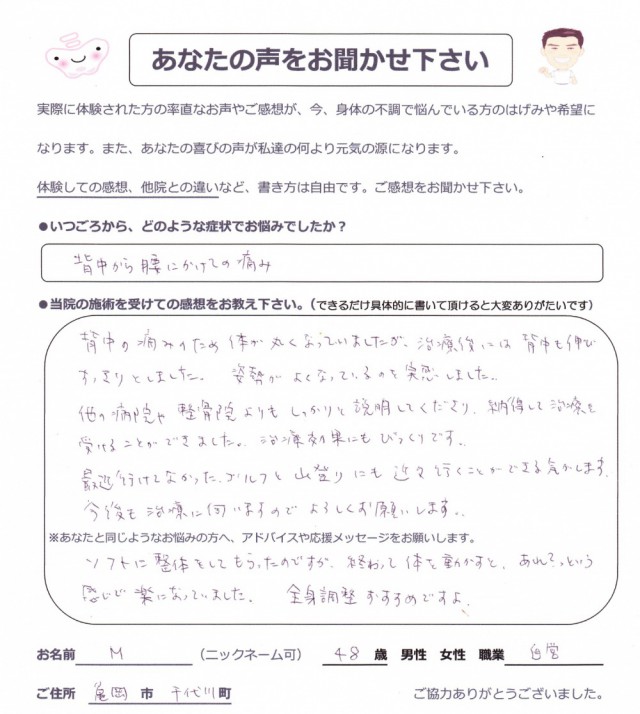 あなたの声をお聞かせ下さい
実際に体験された方の率直なお声やご感想が、今、身体の不調で悩んでいる方のはげみや希望に
なります。また、あなたの喜びの声が私達の何より元気の源になります。
体験しての感想、他院との違いなど、書き方は自由です。ご感想をお聞かせ下さい。
●いつごろから、どのような症状でお悩みでしたか？
背中から腰にかけての痛み
●当院の施術を受けての感想をお教え下さい。（できるだけ具体的に書いて頂けると大変ありがたいです）
背中の痛みのため体が丸くなっていましたが、治療後には背中も伸び
すっきりとしました。 姿勢がよくなっているのを実感しました。
他の病院や整骨院よりもしっかりと説明してくださり、納得して治療を
受けることができました。治療効果にもびっくりです。
最近行けてなかったゴルフと山登りにも近々行くことができる気がします。
今後も治療に伺いますのでよろしくお願いします。
※あなたと同じようなお悩みの方へ、アドバイスや応援メッセージをお願いします。
ソフトに整体をしてもらったのですが、終わって体を動かすと、あれ？っという
感じで楽になっていました。 全身調整おすすめですよ。
お名前 M （ニックネーム可） 48 歳 男性 女性 職業 自営
ご住所 亀岡 市 千代川 町 ご協力ありがとうございました。